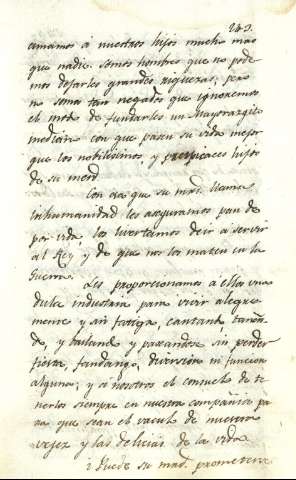 amamos á nuestros hijos mucho mas
que nadie. somos hombres que no pode
mos dejarles grandes riquezas; pero
no somos tan negados que ignoremos
el modo de fundarles un Mayorazgito
mediano con que pasen su vida mejor
que los nobilisimos y perspicaces hijos
de su merd
Con esa que su mrd. llama
inhumanidad les aseguramos pan de
por vida, los libertamos de ir á servir
al Rey y de que nos los maten en la
Guerra.
Les proporcionamos á ellos una
dulce industria para vivir alegre
mente y sin fatiga, cantando, tañen
do, y bailando y paseandose sin perder
fiesta, fandango, diversion ni funcion
alguna; y á nosotros el consuelo de te
nerlos siempre en nuestra compañia pa
ra que sean el vaculo de nuestra
vejez y las delicias de la vida
¿ Puede su mrd. prometerse